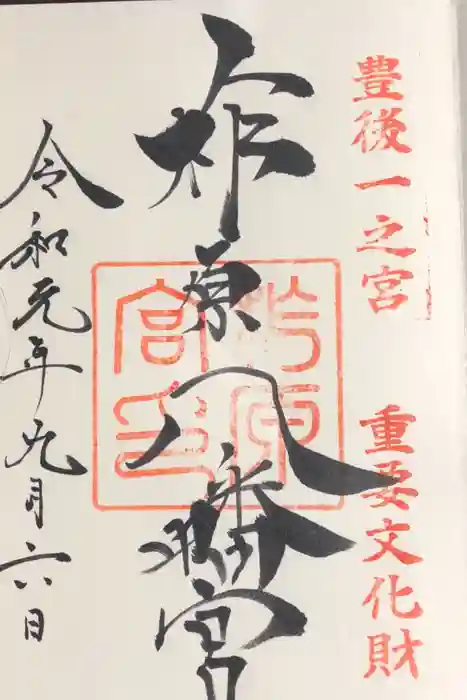 豊後一之宮 重要文化財
柞原八幡宮
柞原宮印
令和元年九月六日